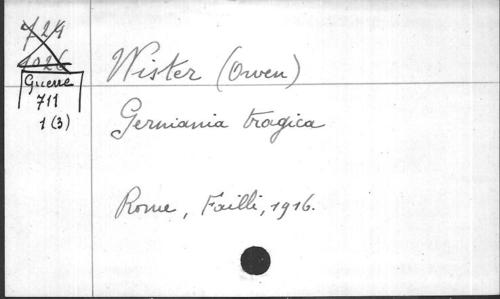 724
1026
Guerre
711
1 (3)
Wister (Owen)
Germania tragica
Rome, Failli, 1916.